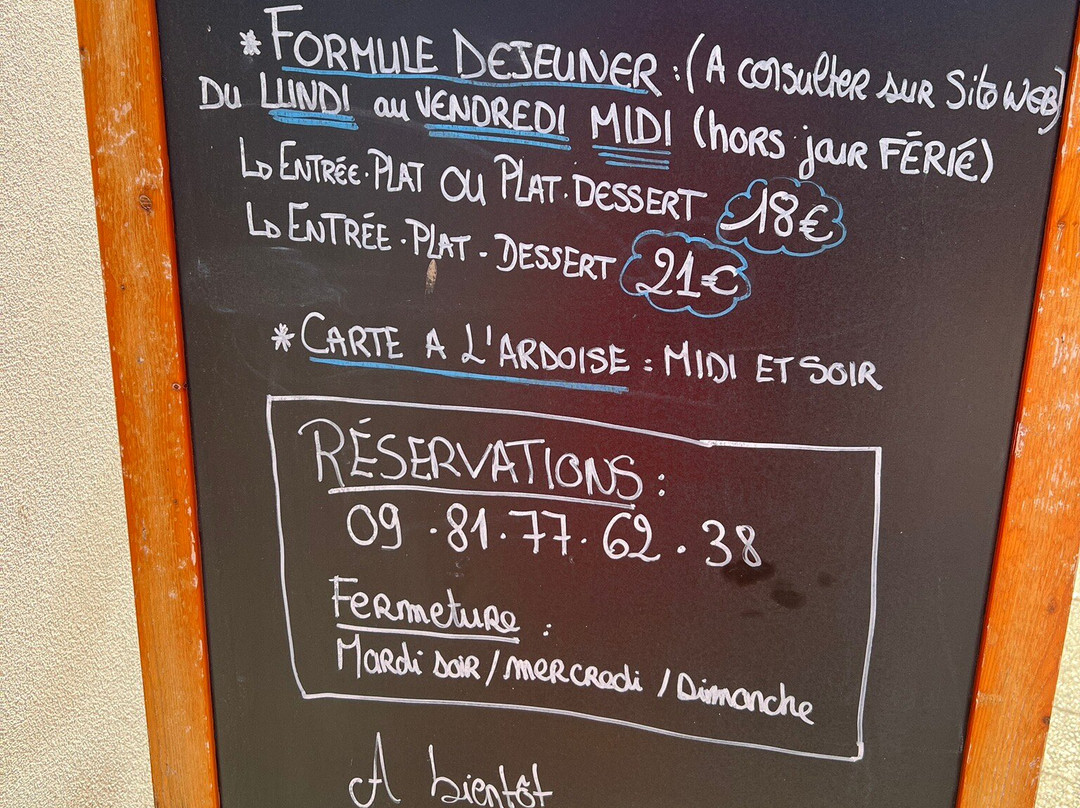 *FORMULE DEJEUNER : (A consulter sur Site WEB)
DU LUNDI au VENDREDI MIDI (hors jour FÉRIÉ)
↳ ENTRÉE.PLAT OU PLAT.DESSERT 18€
↳ ENTRÉE.PLAT-DESSERT 21€
*CARTE A L'ARDOISE : MIDI ET SOIR
RÉSERVATIONS :
09.81.77.62.38
Fermeture :
Mardi soir / mercredi / Dimanche
A bientôt